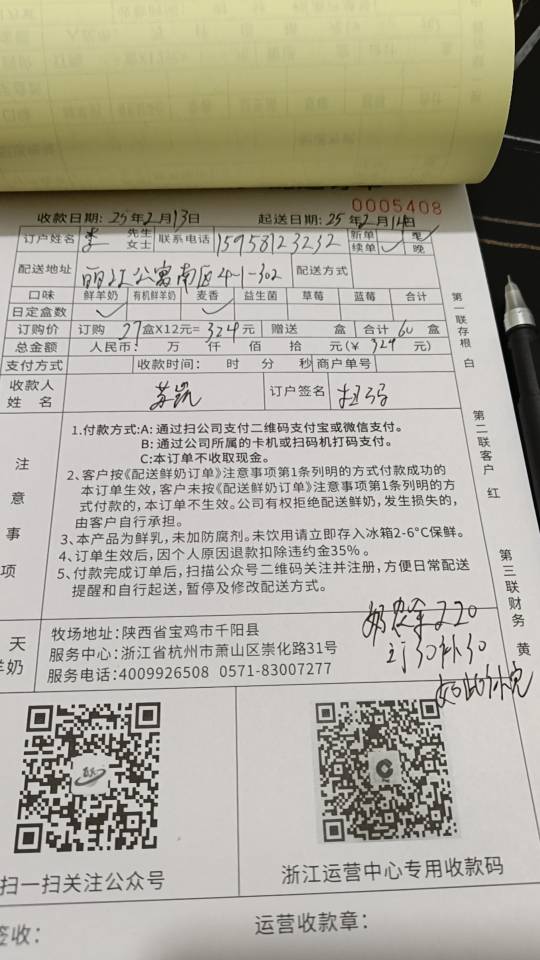 0005408
收款日期: 25年2月13日 起送日期: 25年2月14日
订户姓名 李 先生 女士 联系电话 15958123232 新单 续单 ✓ 早 晚
配送地址 丽江公寓南区4-1-302 配送方式
口味 鲜羊奶 有机鲜羊奶 麦香 益生菌 草莓 蓝莓 合计
日定盒数 ✓ ✓
订购价 订购 27盒X12元=324元 赠送 盒 合计60盒
总金额 人民币: 万 仟 佰 拾 元(¥ 324 元)
支付方式 收款时间: 时 分 秒 商户单号
收款人姓名 苏凯 订户签名 扫码
注意事项
1.付款方式:A:通过扫公司支付二维码支付宝或微信支付。
B:通过公司所属的卡机或扫码机打码支付。
C:本订单不收取现金。
2、客户按《配送鲜奶订单》注意事项第1条列明的方式付款成功的
本订单生效,客户未按《配送鲜奶订单》注意事项第1条列明的方
式付款的,本订单不生效。公司有权拒绝配送鲜奶,发生损失的,
由客户自行承担。
3、本产品为鲜乳,未加防腐剂。未饮用请立即存入冰箱2-6°C保鲜。
4、订单生效后,因个人原因退款扣除违约金35%。
5、付款完成订单后,扫描公众号二维码关注并注册,方便日常配送
提醒和自行起送,暂停及修改配送方式。
第一联存根 白
第二联客户 红
第三联财务 黄
天
羊奶
牧场地址:陕西省宝鸡市千阳县
服务中心:浙江省杭州市萧山区崇化路31号
服务电话:4009926508 0571-83007277
220
订30补30
如此补完
扫一扫关注公众号
浙江运营中心专用收款码
签收:
运营收款章: